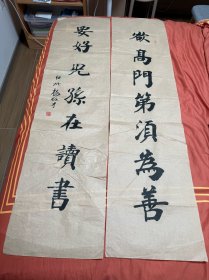 欲高門第須為善
要好兒孫在讀書